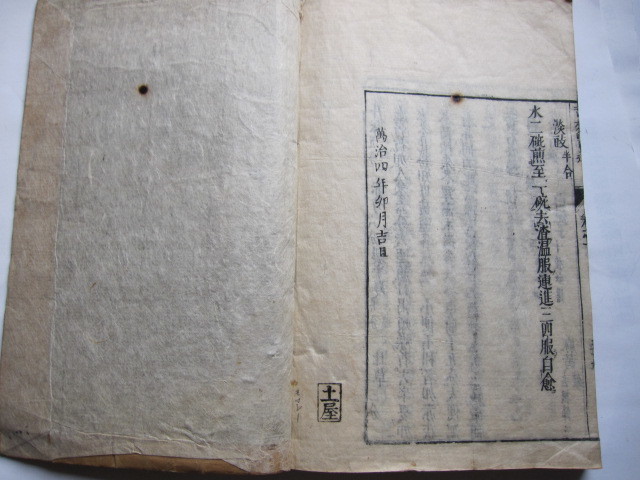 淡豉半合
水二碗煎至一碗去滓温服連進三兩服自愈
萬治四年卯月吉日
土屋